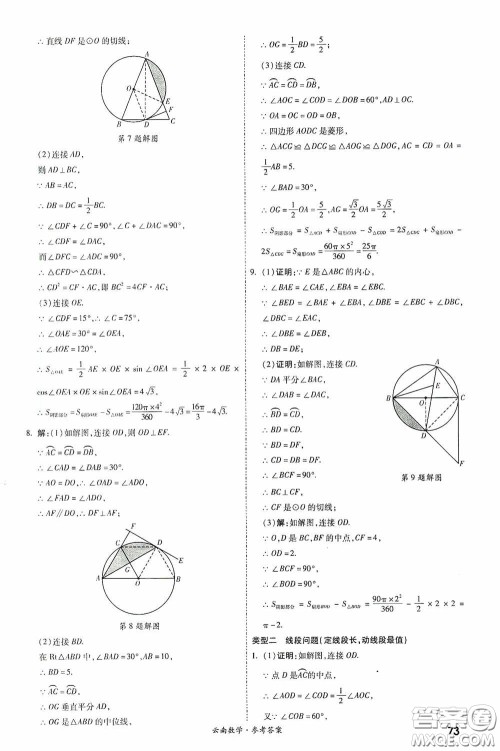 ∴ 直线 DF 是⊙O 的切线;
A
O
E
F
B
D
C
第 7 题解图
(2)连接 AD,
则 AD⊥BC,
∵ AB=AC,
∴ DB=DC=1/2BC.
∵ ∠CDF+∠C=90°,∠C+∠DAC=90°,
∴ ∠CDF=∠DAC,
而∠DFC=∠ADC=90°,
∴ △CFD∽△CDA,
∴ CD²=CF·AC,即 BC²=4CF·AC;
(3)连接 OE.
∵ ∠CDF=15°,∴ ∠C=75°,
∴ ∠OAE=30°=∠OEA,
∴ ∠AOE=120°,
∴ S△OAE=1/2AE×OE×sin∠OEA=1/2×2×OE×
cos∠OEA×OEsin∠OEA=4√3,
∴ S阴影部分=S扇形OAE-S△OAE=120π×4²/360-4√3=16π/3-4√3.
8. 解:(1)如解图,连接 OD,则 OD⊥EF.
∵ AC=CD=DB,
∴ ∠CAD=∠DAB=30°,
∵ AO=DO,∴ ∠OAD=∠ODA,
∴ ∠FAD=∠ADO,
∴ AF∥DO,∴ AF⊥EF;
F
C
D
E
G
A
O
B
第 8 题解图
(2)解:连接 BD.
在 Rt△ABD 中,∠BAD=30°,AB=10,
∴ BD=5.
∵ OG 垂直平分 AD,
∴ OG 是△ABD 的中位线,
∴ OG=1/2BD=5/2;
(3)连接 CD.
∵ AC=CD=DB,
∴ ∠AOC=∠COD=∠DOB=60°,AD⊥OC.
∵ OA=OC=OD=OB,
∴ 四边形 AODC 是菱形,
∴ △ACG≌△DCG≌△AOG≌△DOG,
AB=5.
∵ ∠BAD=30°,
∴ OG=1/2OA=5/2,AG=√3/2OA=5√3/2,
∴ S阴影部分=S△ACG+S扇形COD-S△COG=2S△CDG+S扇形COD-
2S△CDG=S扇形COD=60π×5²/360=25π/6.
9. (1)证明:∵ E 是△ABC 的内心,
∴ ∠BAE=∠CAE,∠EBA=∠EBC,
∵ ∠BED=∠BAE+∠EBA,∠DBE=∠EBC+∠DBC,
∠DBC=∠EAC,
∴ ∠DBE=∠DEB,
∴ DB=DE;
(2)证明:如解图,连接 CD.
∵ DA 平分∠BAC,
∴ ∠DAB=∠DAC,
∴ BD=CD,
∴ BD=CD,
∵ BD=DF,
∴ CD=DB=DF,
∴ ∠BCF=90°,
∴ BC⊥CF,
∴ CF 是⊙O 的切线;
(3)解:如解图,连接 OD.
∵ O、D 是 BC、BF 的中点,CF=4,
∴ OD=2.
∵ ∠BCF=90°,
∴ ∠BOD=90°,
∴ S阴影部分=S扇形BOD-S△BOD=90π×2²/360-1/2×2×2=
π-2.
A
E
B
O
C
D
F
第 9 题解图
类型二 线段问题(定线段长,动线段最值)
1. (1)证明:如解图,连接 OD.
∵ 点 D 是AC的中点,
∴ ∠COD=∠AOD,
又∵ ∠COB=60°,
云南数学·参考答案
73